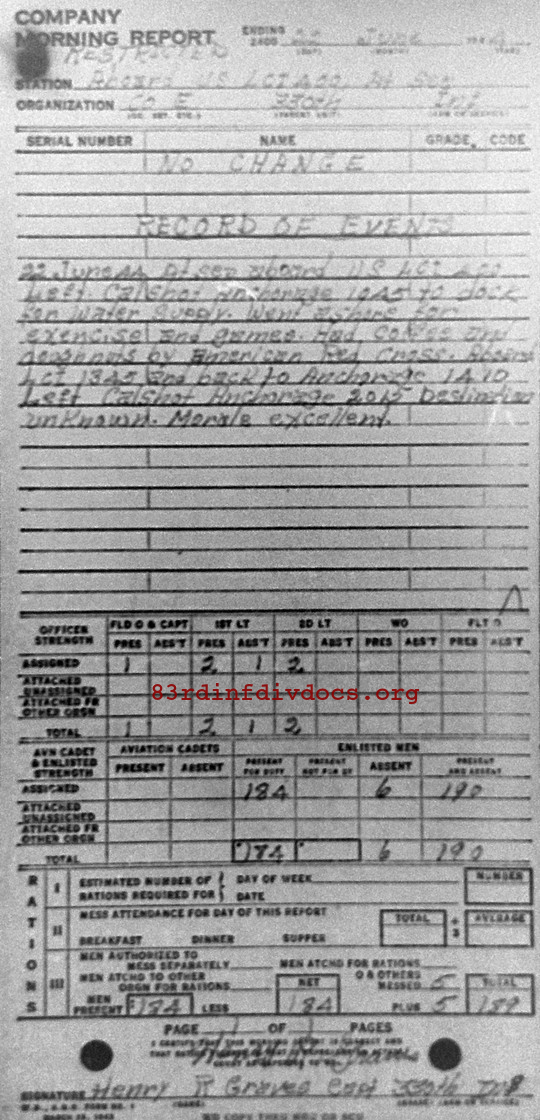 COMPANY
MORNING REPORT ENDING 2400 22 June 1944
RESTRICTED
STATION Aboard US LCI 400 At Sea
ORGANIZATION Co E 330th Inf
SERIAL NUMBER NAME GRADE CODE
NO CHANGE
RECORD OF EVENTS
22 June 44 At sea aboard US LCI
Left Calshot Anchorage 1045 to dock
for water supply. Went ashore for
exercise and games. Had coffee and
doughnuts by American Red Cross. Aboard
LCI 1345 and back to Anchorage 1410
Left Calshot Anchorage 2015 Destination
unknown. Morale excellent.
OFFICER STRENGTH FLD O & CAPT 1ST LT 2D LT WO FLT O
PRES ABS'T PRES ABS'T PRES ABS'T PRES ABS'T PRES ABS'T
ASSIGNED 1 2 1 2
ATTACHED UNASSIGNED
83rdinfdivdocs.org
ATTACHED FR OTHER ORGN
TOTAL 1 2 1 2
AVN CADET & ENLISTED STRENGTH AVIATION CADETS ENLISTED MEN
PRESENT ABSENT PRESENT FOR DUTY PRESENT NOT FOR DY ABSENT PRESENT AND ABSENT
ASSIGNED 184 6 190
ATTACHED UNASSIGNED
ATTACHED FR OTHER ORGN
TOTAL 184 6 190
RATIONS
I ESTIMATED NUMBER OF RATIONS REQUIRED FOR DAY OF WEEK DATE NUMBER
II MESS ATTENDANCE FOR DAY OF THIS REPORT TOTAL ÷ 3 AVERAGE
BREAKFAST DINNER SUPPER
III MEN AUTHORIZED TO MESS SEPARATELY MEN ATCHD FOR RATIONS
MEN ATCHD TO OTHER ORGN FOR RATIONS NET O & OTHERS MESSED 5 TOTAL
MEN PRESENT 184 LESS 184 PLUS 5 189
PAGE 1 OF 1 PAGES
I CERTIFY THAT THIS MORNING REPORT IS CORRECT AND
SIGNATURE Henry R Graves Capt 330th Inf